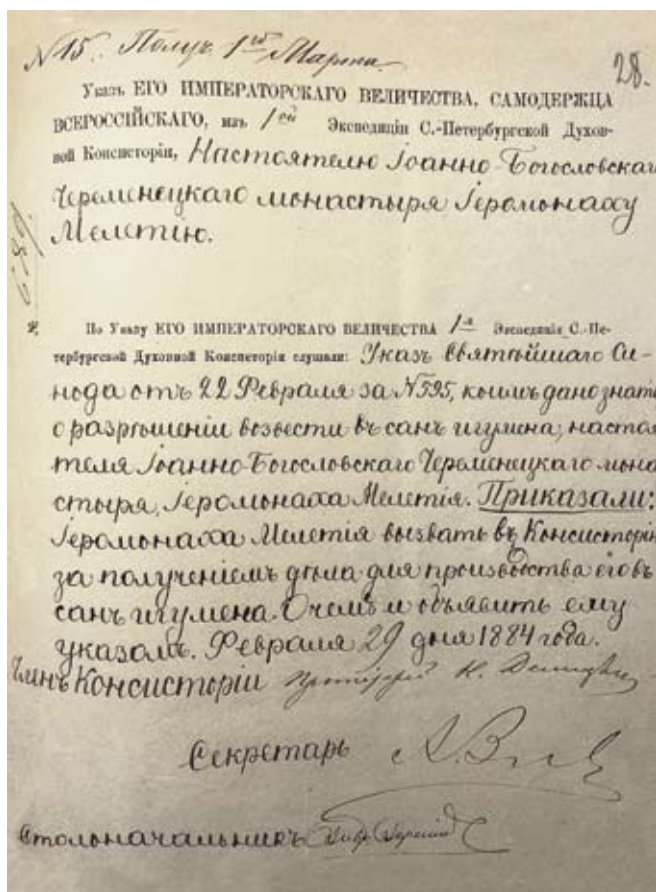 N 15. Получ. 1го Марта.
28.
Указъ ЕГО ИМПЕРАТОРСКАГО ВЕЛИЧЕСТВА, САМОДЕРЖЦА
ВСЕРОССІЙСКАГО, изъ 1ей Экспедиціи С.-Петербургской Духов-
ной Консисторіи, Настоятелю Іоанно-Богословскаго
Череменецкаго монастыря Іеромонаху
Мелетію.
По Указу ЕГО ИМПЕРАТОРСКАГО ВЕЛИЧЕСТВА 1-я Экспедиція С.-Пе-
тербургской Духовной Консисторіи слушали: Указъ Святѣйшаго Си-
нода отъ 22 Февраля за N 595, коимъ дано знать
о разрѣшеніи возвести въ санъ игумена, настоя-
теля Іоанно-Богословскаго Череменецкаго мона-
стыря, Іеромонаха Мелетія. Приказали:
Іеромонаха Мелетія вызвать въ Консисторію
за полученіемъ дѣла для производства его въ
санъ игумена. О чемъ и объявить ему
указомъ. Февраля 29 дня 1884 года.
Членъ Консисторіи Протоіерей К.
Секретарь А.
Столоначальникъ